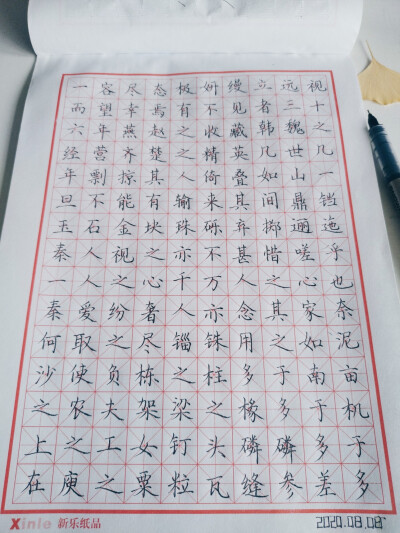 一容尽态极妍缦立远视
而望幸焉有不见者三十
六年燕赵之收藏韩魏之
经营齐楚之精英几世几
年剽掠其人倚叠如山一
旦不能有输来其间鼎铛
玉石金块珠砾弃掷逦迤
秦人视之亦不甚惜嗟乎
一人之心千万人之心也
秦爱纷奢人亦念其家奈
何取之尽锱铢用之如泥
沙使负栋之柱多于南亩
之农夫架梁之椽多于机
上之工女钉头磷磷多于
在庾之粟粒瓦缝参差多
Xinle 新乐纸品
2020.08.08